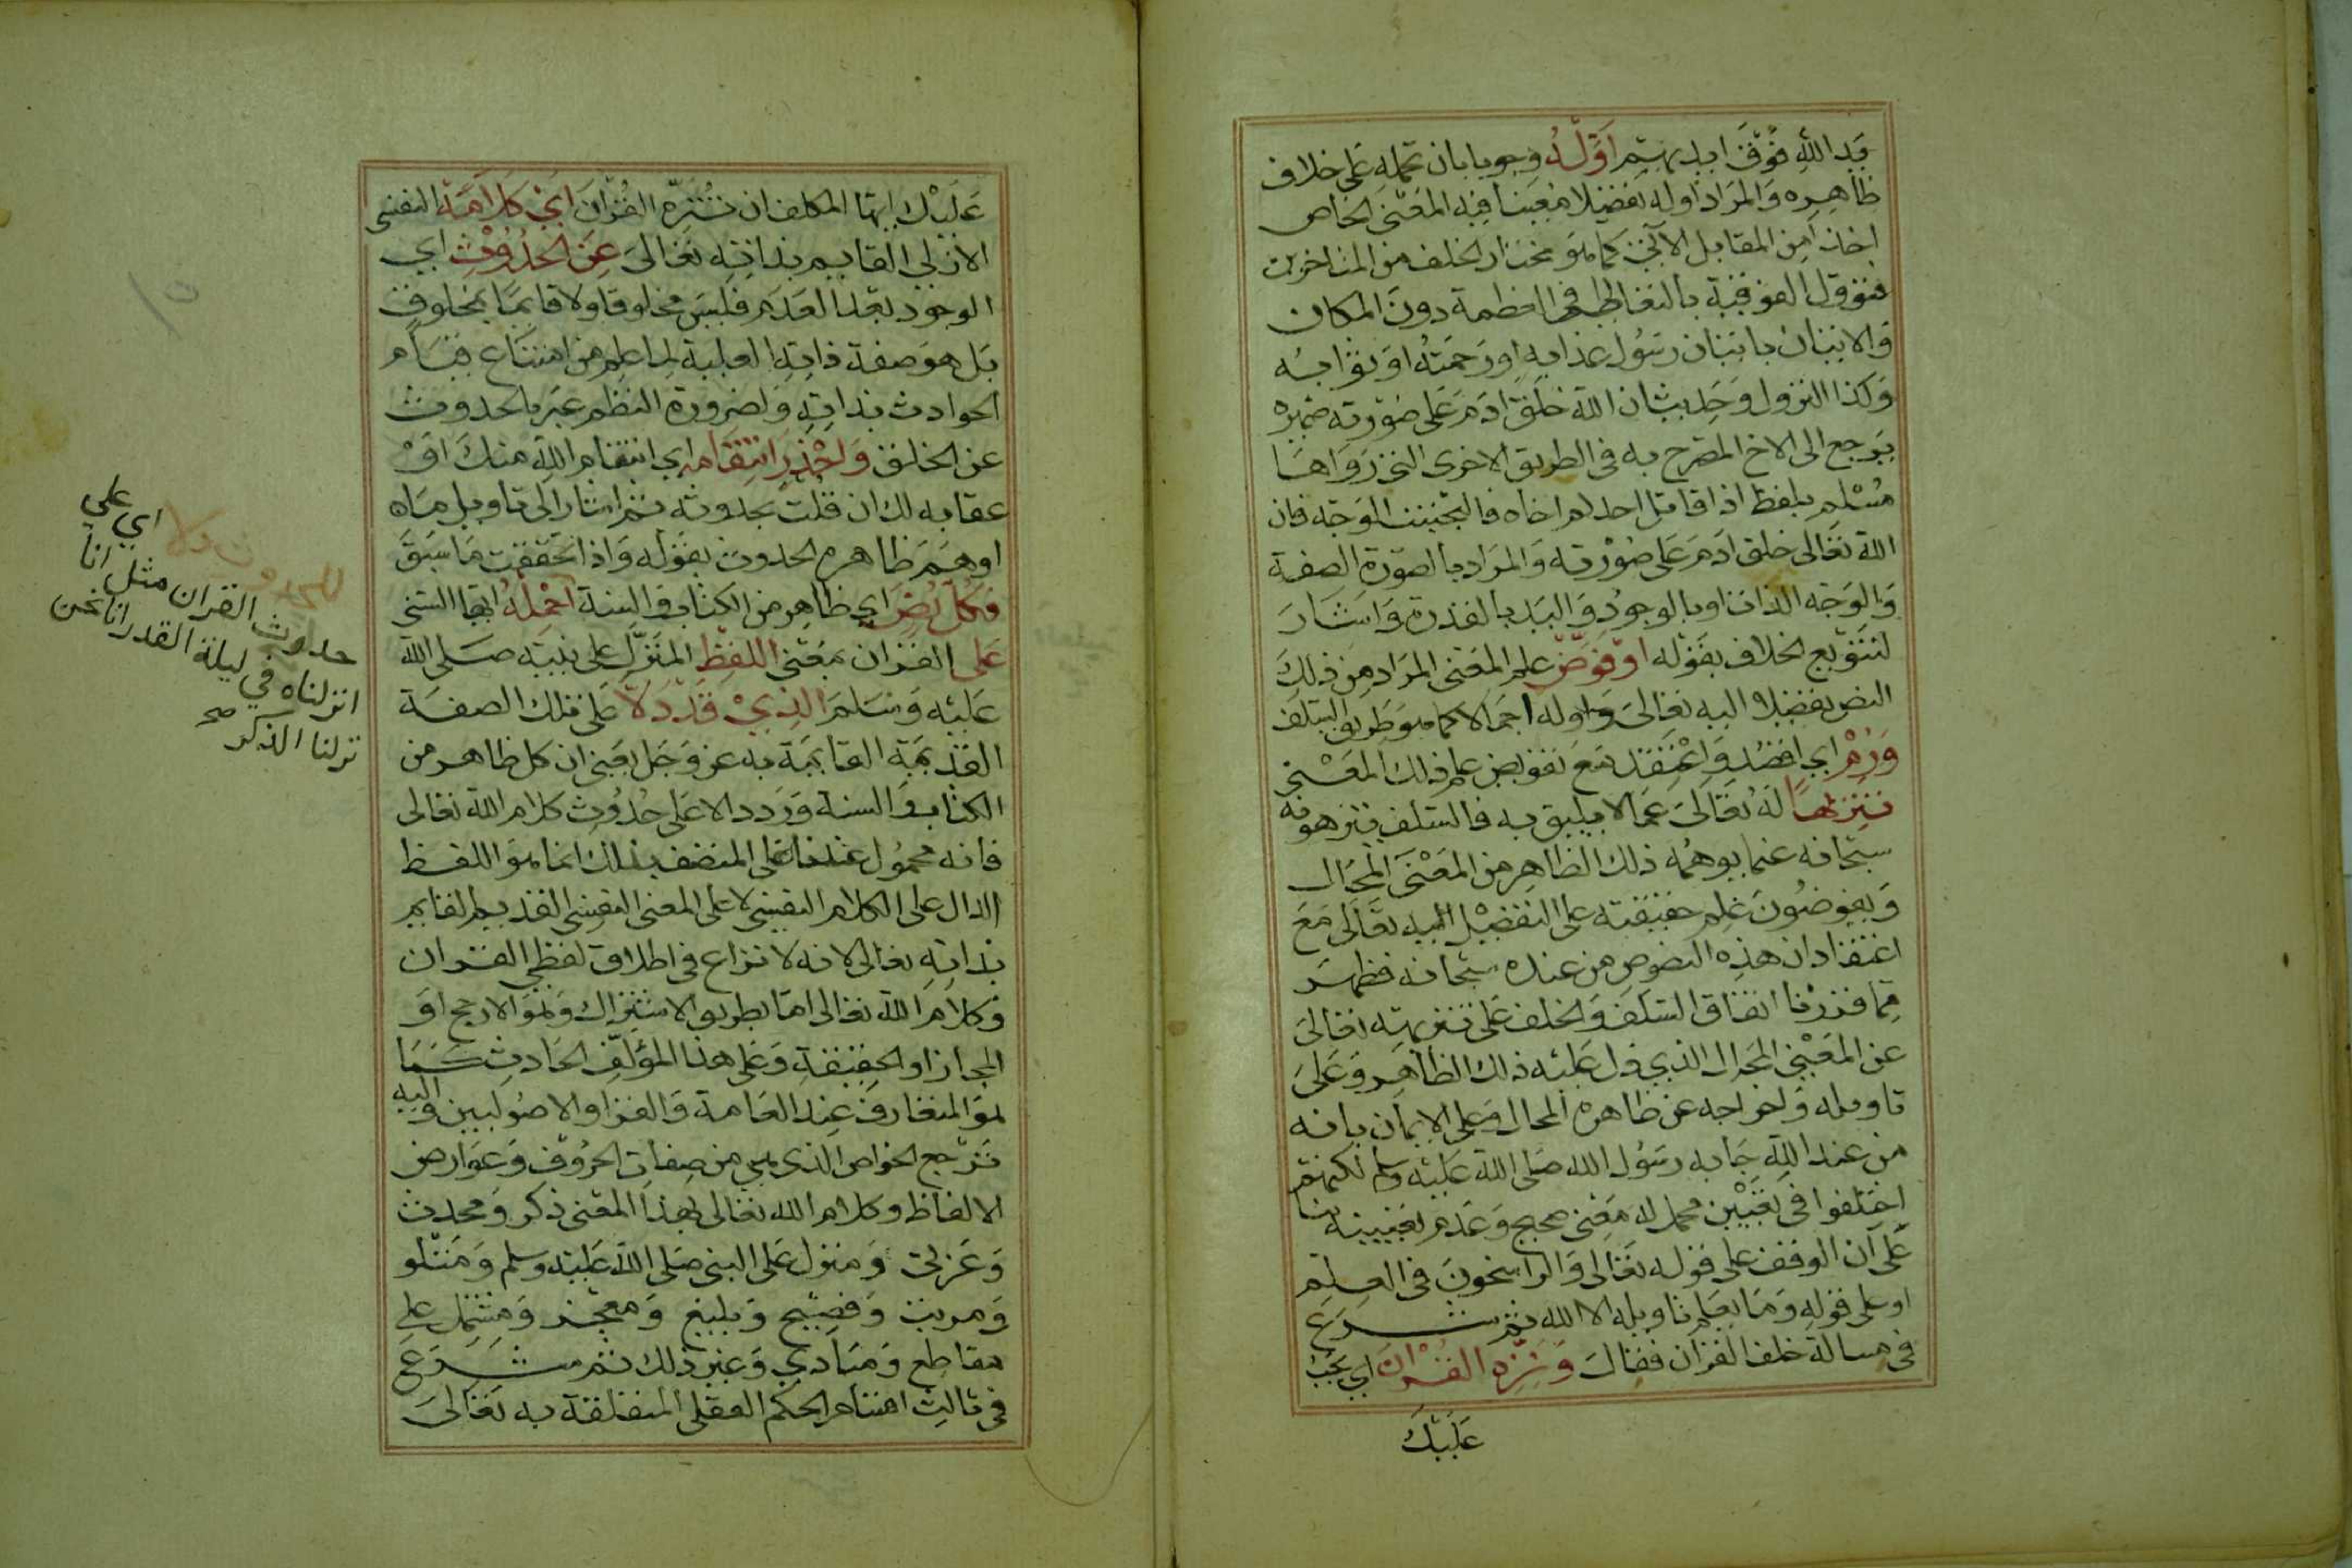 يد الله فوق ايديهم اوّله وجوبا بان تحمله على خلاف
ظاهره والمراد اوله تفصيلا معينا فيه المعنى الخاص
اخذا من المقابل الآتي كما هو مختار الخلف من المتاخرين
فتؤول الفوقية بالتعالي في العظمة دون المكان
والاتيان باتيان رسول عذابه او رحمته او ثوابه
وكذا النزول وحديث ان الله خلق ادم على صورته ضميره
يرجع الى الاخ المصرح به في الطريق الاخرى التي رواها
مسلم بلفظ اذا قاتل احدكم اخاه فاليجتنب الوجه فان
الله تعالى خلق ادم على صورته والمراد بالصورة الصفة
وبالوجه الذات او بالوجود واليد بالقدرة واشار
لتنويع الخلاف بقوله او فوّض علم المعنى المراد من ذلك
النص تفصيلا اليه تعالى واوله اجمالا كما هو طريق السلف
ورم اي اقصد واعتقد مع تفويض علم ذلك المعنى
تنزيها له تعالى عما لا يليق به فالسلف ينزهونه
سبحانه عما يوهمه ذلك الظاهر من المعنى المحال
ويفوضون علم حقيقته على التفصيل اليه تعالى مع
اعتقاد ان هذه النصوص من عنده سبحانه فظهر
مما قررنا اتفاق السلف والخلف على تنزيهه تعالى
عن المعنى المحال الذي دل عليه ذلك الظاهر وعلى
تاويله واخراجه عن ظاهره المحال وعلى الايمان بانه
من عند الله جا به رسول الله صلى الله عليه وسلم لكنهم
اختلفوا في تعيين محمل له معنى صحيح وعدم تعيينه بنا
على ان الوقف على قوله تعالى والراسخون في العلم
او على قوله وما يعلم تاويله الا الله ثم شرع
في مسالة خلق القران فقال ونزّه القران اي يجب
عليك
عليك ايها المكلف ان تنزه القران اي كلامه النفسي
الازلي القايم بذاته تعالى عن الحدوث اي
الوجود بعد العدم فليس مخلوقا ولا قايما بمخلوق
بل هو صفة ذاته العلية لما علم من امتناع قيام
الحوادث بذاته ولضرورة النظم عبر بالحدوث
عن الخلق واحذر انتقامه اي انتقام الله منك او
عقابه لك ان قلت بحدوثه ثم اشار الى تاويل ما
اوهم ظاهره الحدوث بقوله واذا تحققت ما سبق
فكل نص اي ظاهر من الكتاب والسنة احمله ايها السني
على القران بمعنى اللفظ المنزل على نبيه صلى الله
عليه وسلم الذي قد دلا على تلك الصفة
القديمة القايمة به عز وجل يعني ان كل ظاهر من
الكتاب والسنة ورد دالا على حدوث كلام الله تعالى
فانه محمول عندنا على المتصف بذلك انما هو اللفظ
الدال على الكلام النفسي لا على المعنى النفسي القديم القايم
بذاته تعالى لانه لا نزاع في اطلاق لفظي القران
وكلام الله تعالى اما بطريق الاشتراك وهو الارجح او
المجاز او الحقيقة وعلى هذا المؤلف الحادث كما
هو المتعارف عند العامة والقرا والاصوليين واليه
ترجع الخواص الذي هي من صفات الحروف وعوارض
الالفاظ وكلام الله تعالى بهذا المعنى ذكر ومحدث
وعربي ومنزل على النبي صلى الله عليه وسلم ومتلو
ومرتب وفصيح وبليغ ومعجز ومشتمل على
مقاطع ومبادي وغير ذلك ثم شرع
في ثالث اقسام الحكم العقلي المتعلقة به تعالى
للحدوث دلا
اي على
حدوث القران مثل انا
انزلناه في ليلة القدر انا نحن
نزلنا الذكر صح